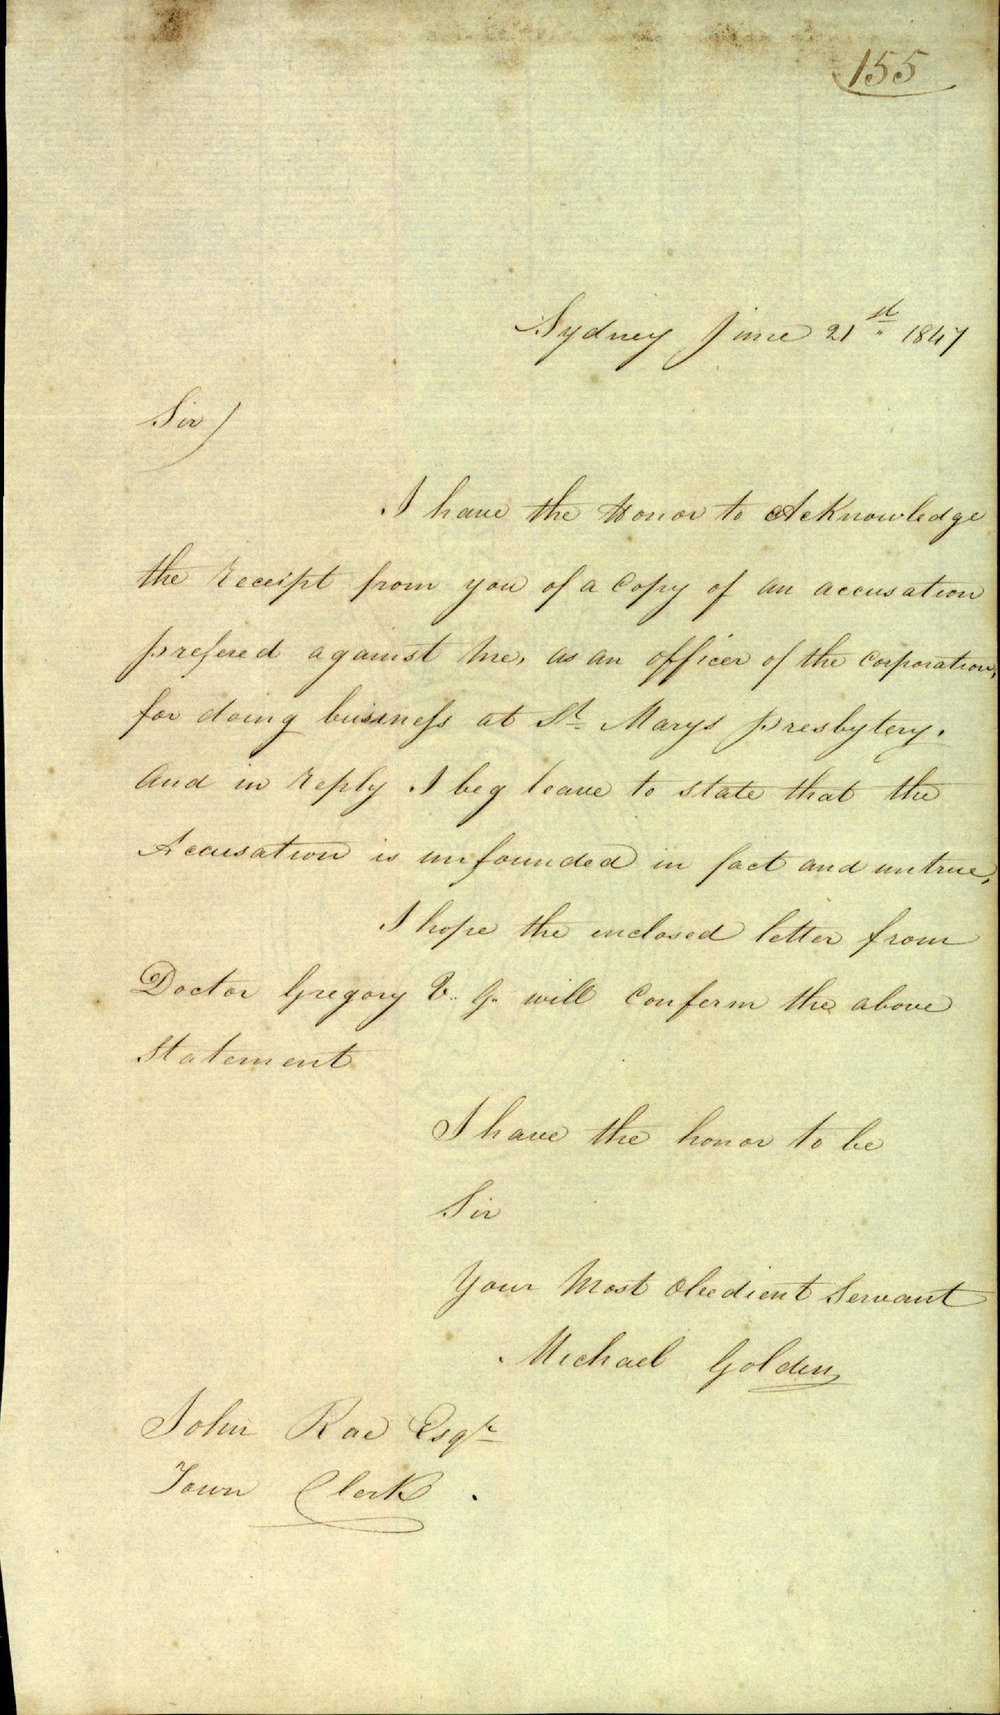 155
Sydney June 21st 1847
Sir)
I have the Honor to Acknowledge
the receipt from you of a Copy of an accusation
prefered against me, as an officer of the Corporation,
for doing business at St. Marys presbytery.
And in reply I beg leave to state that the
Accusation is unfounded in fact and untrue,
I hope the enclosed letter from
Doctor Gregory V. G. will Conferm the above
statement
I have the honor to be
Sir
Your Most Obedient Servant
Michael Golden
John Rae Esqr
Town Clerk.